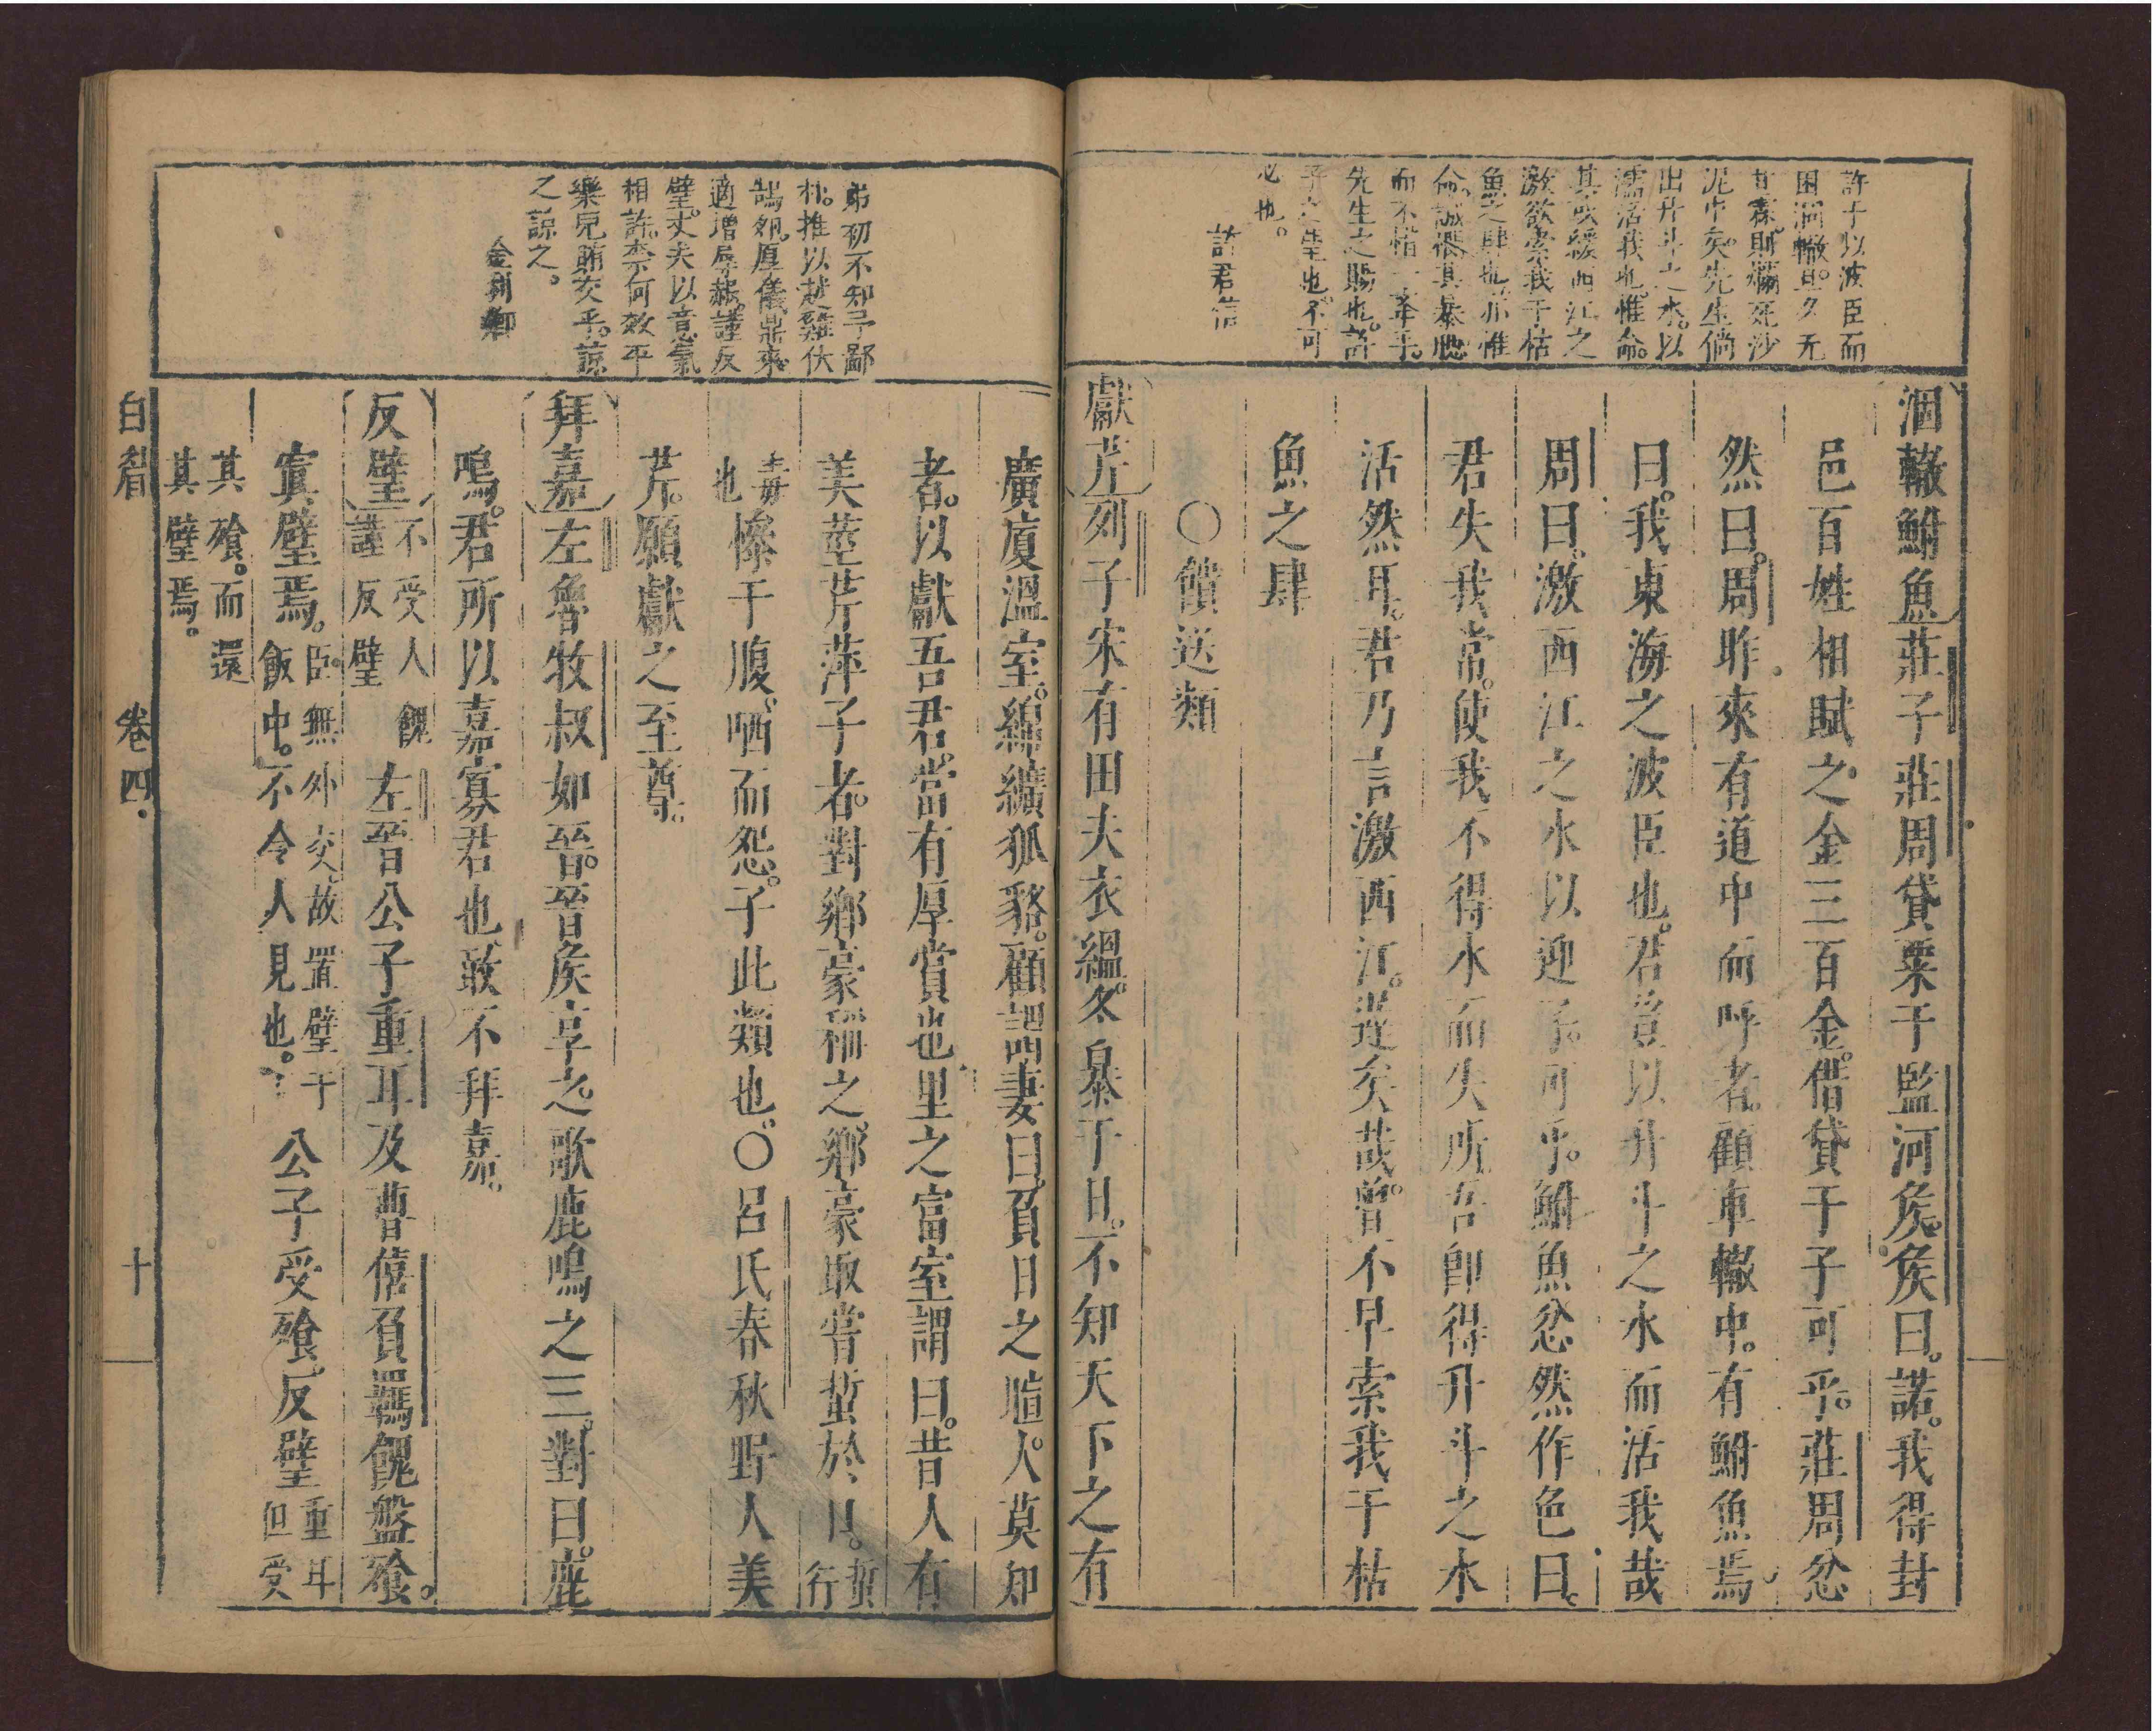 許子以波臣而
困涸轍。旦夕无
甘霖。則斃死沙
泥中矣。先生倘
出升斗之水。以
濡活我也。惟命。
其或緩西江之
激。欲索我于枯
魚之肆也。亦惟
命。誠得其暴腮
而不惜一舉手。
先生之賜也。許
子之望也。不可
必也。
許君信
涸轍鮒魚莊子莊周貸粟于監河侯。侯曰。諾。我得封
邑百姓相賦之金三百金。借貸于子可乎。莊周忿
然曰。周昨來有道中而呼者。顧車轍中。有鮒魚焉
曰。我東海之波臣也。君豈以升斗之水而活我哉
周曰。激西江之水以迎子。可乎。鮒魚忿然作色曰。
君失我常。使我不得水而失所。吾卽得升斗之水
活然耳。君乃言激西江。遲矣哉。曾不早索我于枯
魚之肆
○饋送類
獻芹列子宋有田夫衣縕。冬暴于日。不知天下之有
弟初不知子鄙
朴。推以越雞伏
鵠夘。厚儀鼎來。
適增辱赧。謹反
璧。丈夫以意氣
相許。柰何效平
樂兒賄交乎。諒
之諒之。
金荊卿
廣厦溫室。綿纊狐貉。顧謂妻曰。負日之暄。人莫知
者。以獻吾君。當有厚賞也。里之富室謂曰。昔人有
美莖芹萍子者。對鄉豪稱之。鄉豪取嘗蜇於口。蜇行
毒也慘于腹。哂而怨。子此類也。○呂氏春秋野人美
芹。願獻之至尊。
拜嘉左魯牧叔如晉。晉侯享之。歌鹿鳴之三。對曰。鹿
鳴。君所以嘉寡君也。敢不拜嘉。
反璧不受人餽謹反璧左晉公子重耳及曹僖負羈餽盤飧。
寘璧焉。臣無外交。故置璧于飯中。不令人見也。公子受飧。反璧重耳但受
其飧。而還其璧焉。
白眉　卷四　十